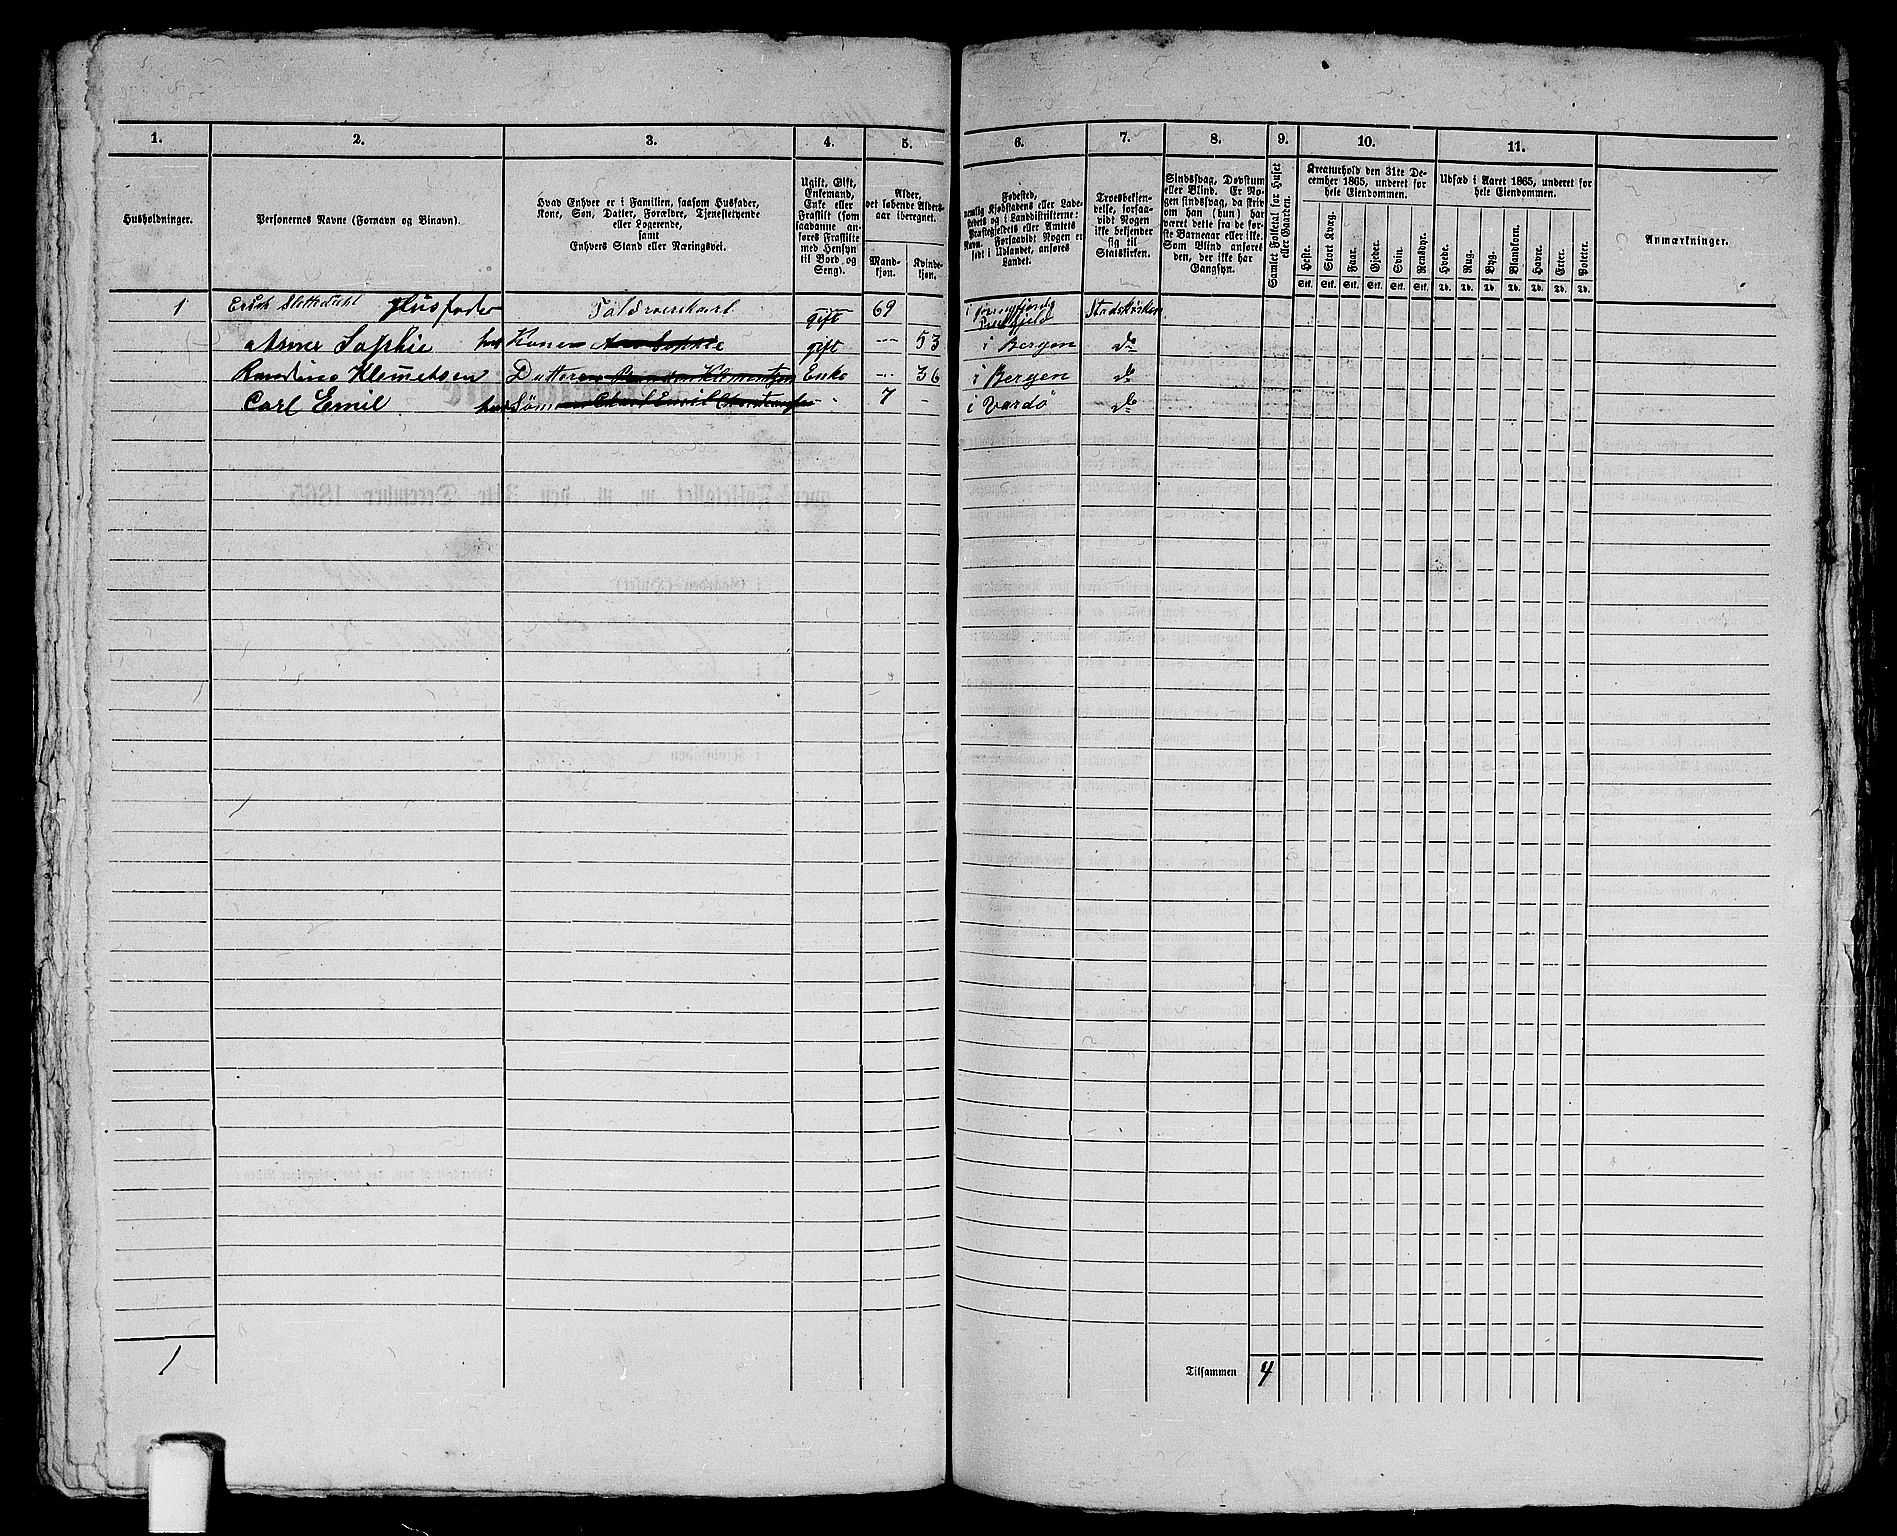 1. 2. 3. 4. 5. 6. 7. 8. 9. 10. 11.
Husholdninger.
Personernes Navne (Fornavn og Binavn).
Hvad Enhver er i Familien, saasom Husfader,
Kone, Søn, Datter, Forældre, Tjenestetyende
eller Logerende,
samt
Enhvers Stand eller Næringsvei.
Ugift, Gift,
Enkemand,
Enke eller
Fraskilt (som
saadanne an-
føres Fraskilte
med Hensyn
til Bord og
Seng).
Alder,
det løbende Alders-
aar iberegnet.
Mand-
kjøn.
Kvinde-
kjøn.
Fødested,
nemlig Kjøbstadens eller Lade-
stedets og i Landdistrikterne:
Præstegjeldets eller Amtets
Navn. Forsaavidt Nogen er
født i Udlandet, anføres
Landet.
Troesbekjen-
delse, forsaa-
vidt Nogen
ikke bekjender
sig til
Statskirken.
Sindssvag, Døvstum
eller Blind. Er No-
gen sindssvag, da skriv
om han (hun) har
været dette fra de før-
ste Barneaar eller ikke.
Som Blind anføres
den, der ikke har
Gangsyn.
Samlet Folketal for Huset
eller Gaarden.
Kreaturhold den 31te De-
cember 1865, underet for
hele Eiendommen.
Heste. Stort Kvæg. Faar. Gjeder. Svin. Rensdyr.
Stk. Stk. Stk. Stk. Stk. Stk.
Udsæd i Aaret 1865, underet for
hele Eiendommen.
Hvede. Rug. Byg. Blandkorn. Havre. Erter. Poteter.
Td. Td. Td. Td. Td. Td. Td.
Anmærkninger.
1 Erich Slettedahl Husfader Toldroerskarl gift 69 i Præstgjeld Stadskirken
Anne Sophie hs Kone Ane Sophie gift -- 53 i Bergen do
Klemetsen Datteren Klementsen Enke -- 36 i Bergen do
Carl Emil hs Søn Carl Emil - 7 - i Vardö do
1
Tilsammen 4